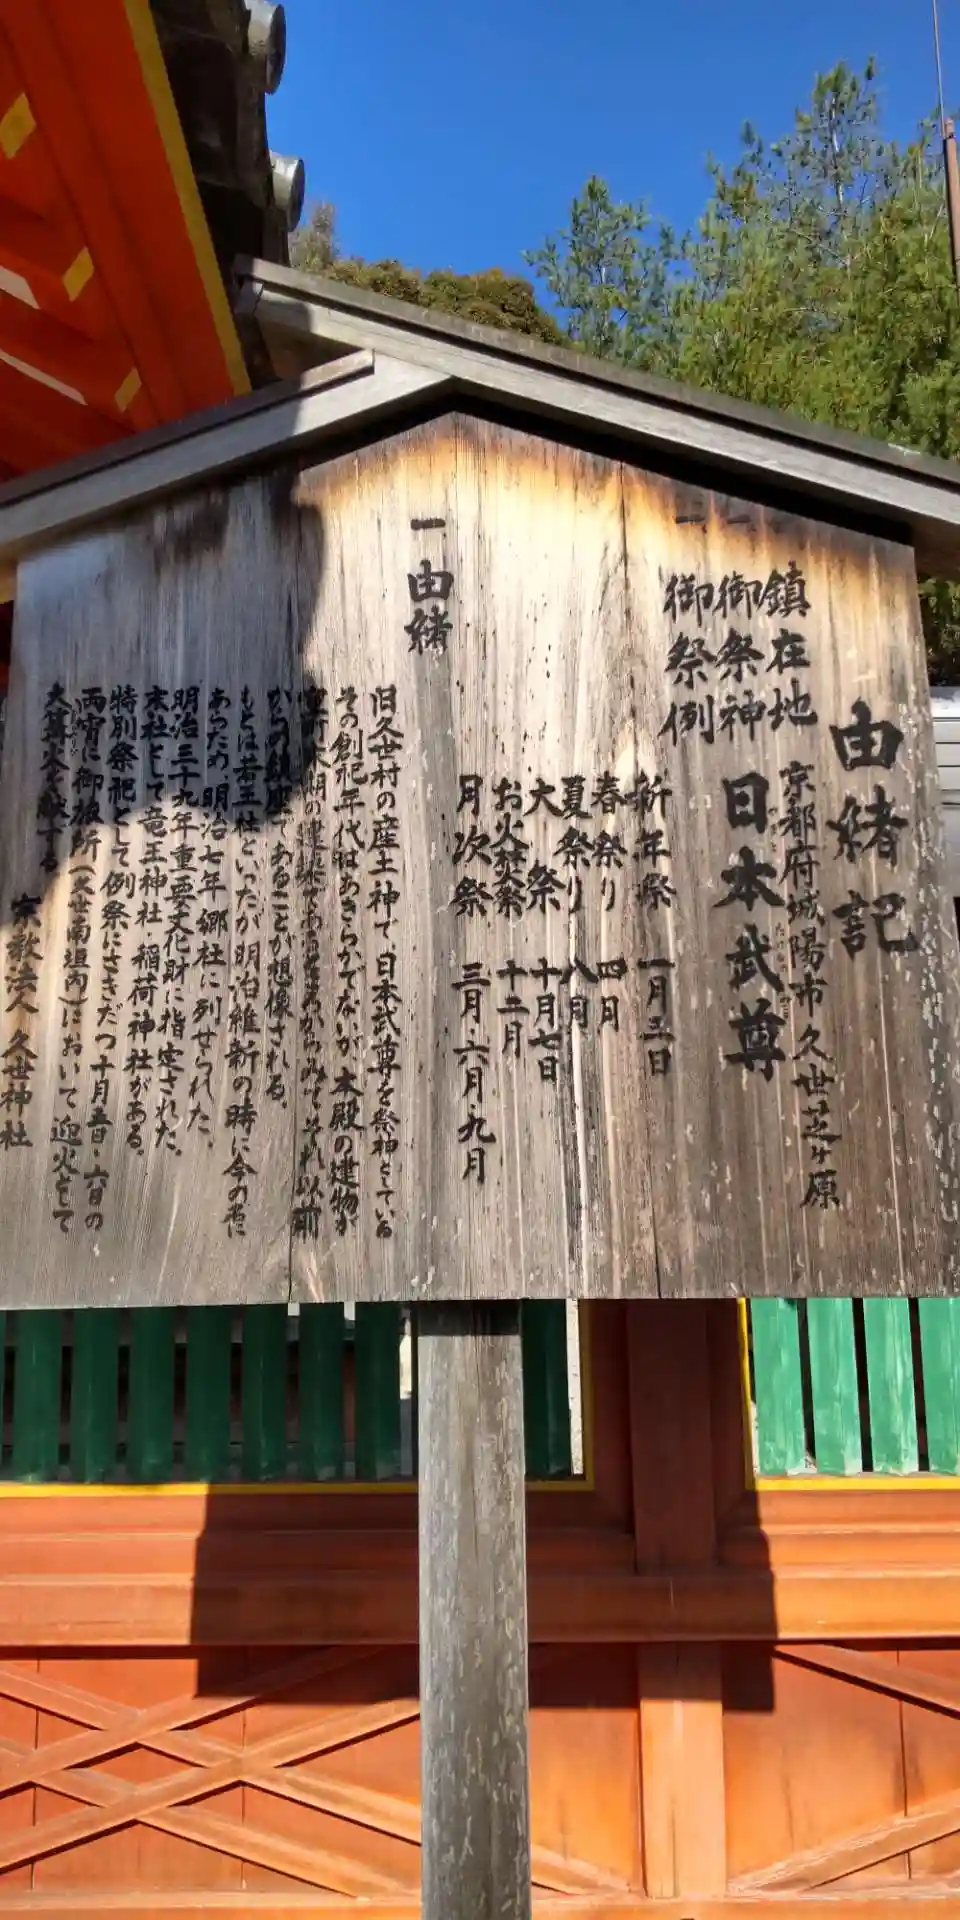 由緒記
一 鎮在地 京都府城陽市久世芝ヶ原
一 御祭神 日本武尊
一 御祭例
新年祭 一月三日
春祭り 四月
夏祭り 八月
大祭 十月七日
お火焚祭 十二月
月次祭 三月・六月・九月
一 由緒
旧久世村の産土神で、日本武尊を祭神としている
その創祀年代はあきらかでないが、本殿の建物が
室町末期の建築であるところからみてそれ以前
からの鎮座であることが想像される。
もとは若王社といったが明治維新の時に今の名に
あらため、明治七年郷社に列せられた。
明治三十九年重要文化財に指定された。
末社として竜王神社・稲荷神社がある。
特別祭祀として例祭にさきだつ十月五日・六日の
両宵に御旅所(久世南垣内)において迎火として
大篝火を献ずる
宗教法人 久世神社